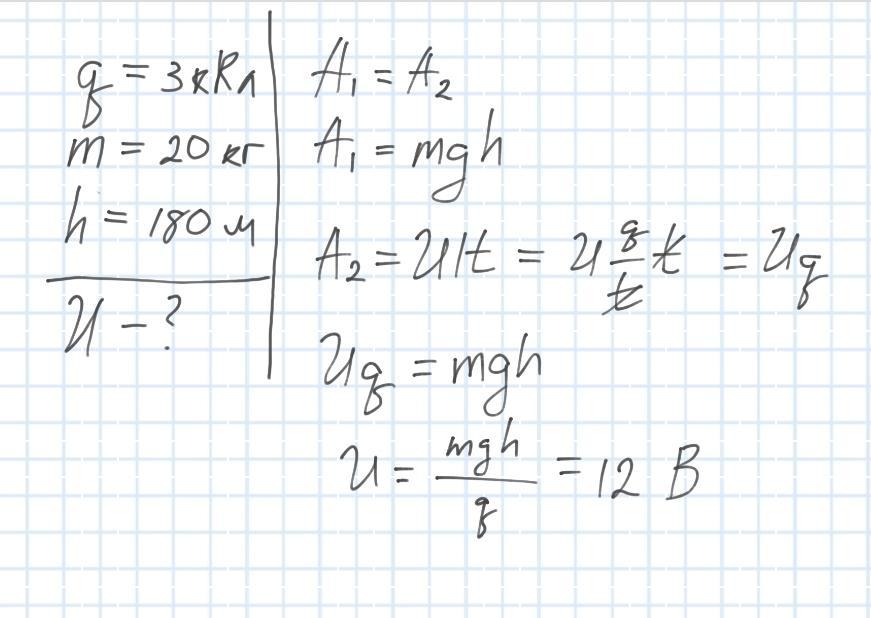 q = 3 кКл
m = 20 кг
h = 180 м
U - ?
A₁ = A₂
A₁ = mgh
A₂ = UIt = U q/t t = Uq
Uq = mgh
U = mgh/q = 12 В